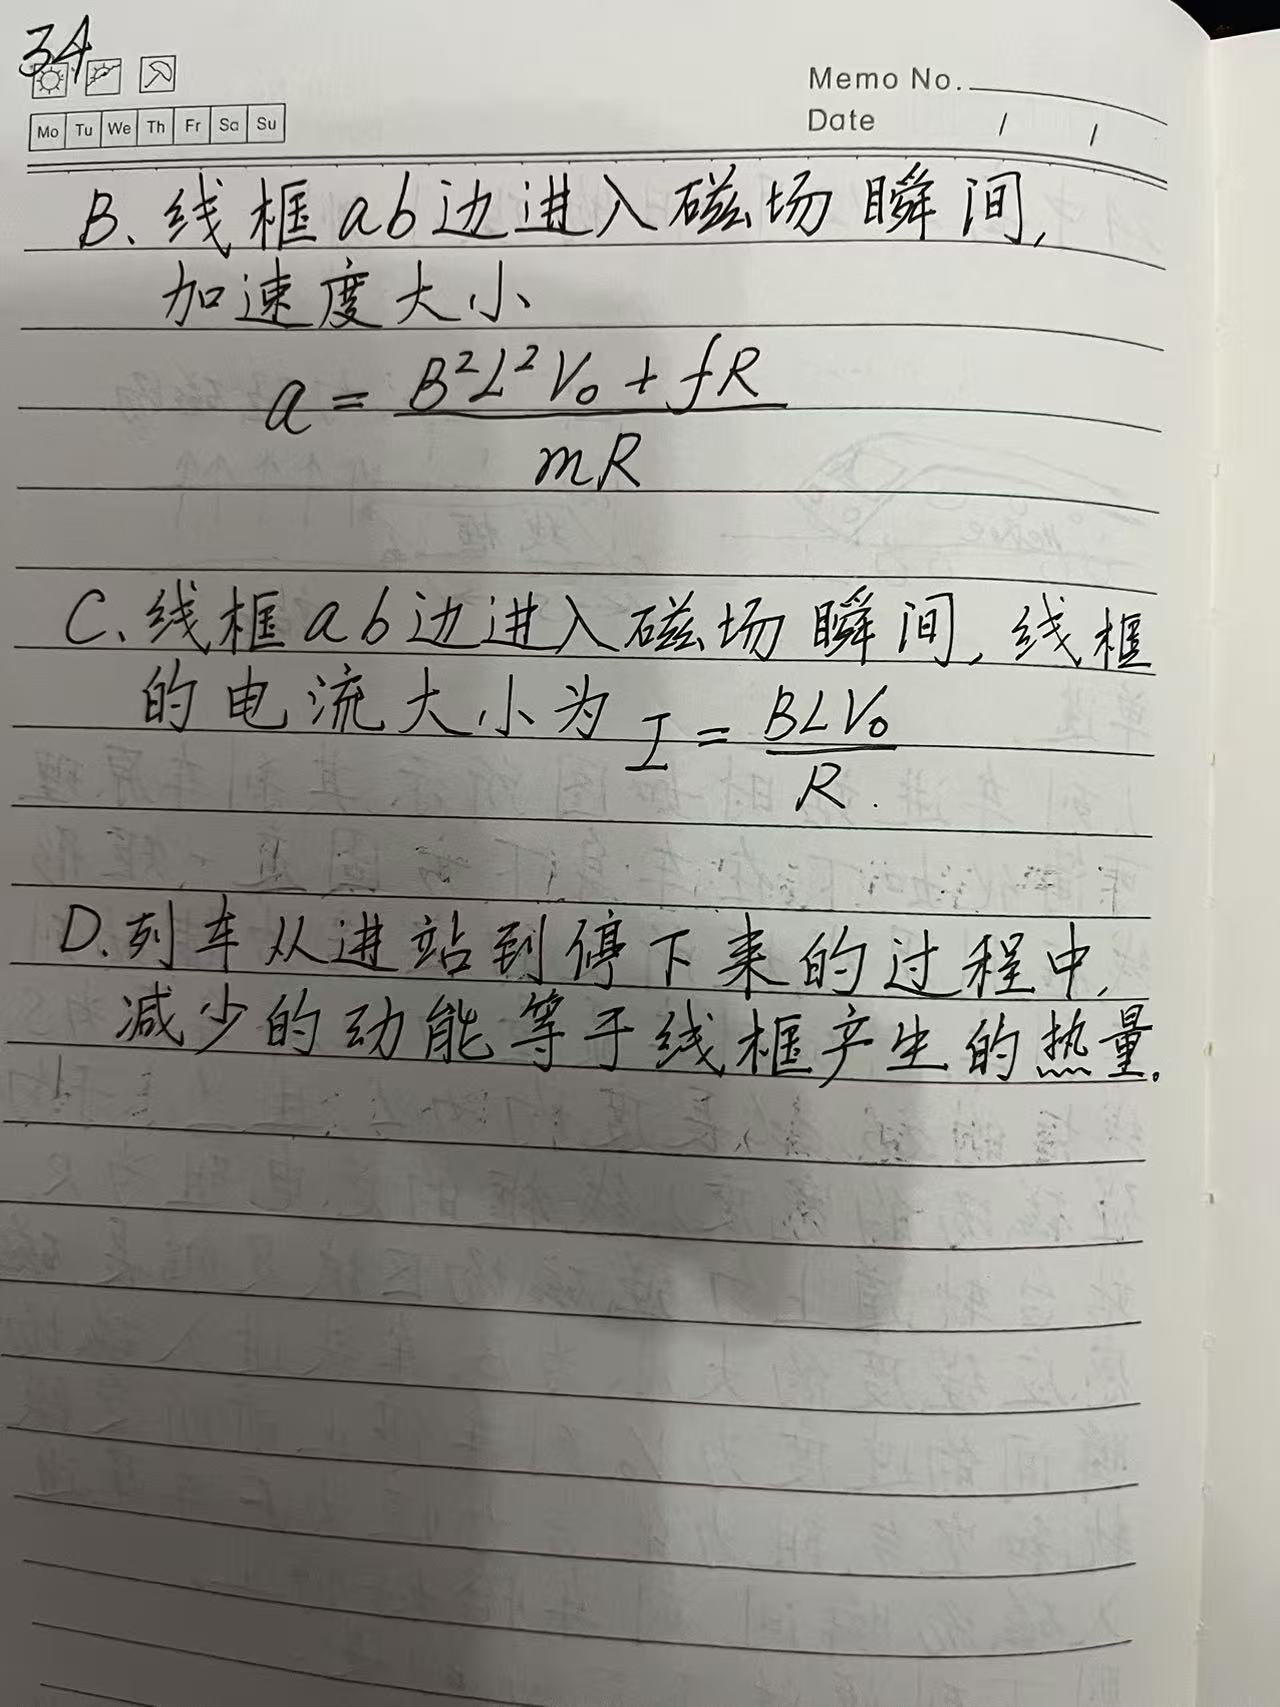 34
Memo No.
Mo Tu We Th Fr Sa Su
Date / /
B、线框ab边进入磁场瞬间,
加速度大小
a = B²L²V₀ + fR
mR
C、线框ab边进入磁场瞬间,线框
的电流大小为 I = BLV₀
R.
D.列车从进站到停下来的过程中,
减少的动能等于线框产生的热量。